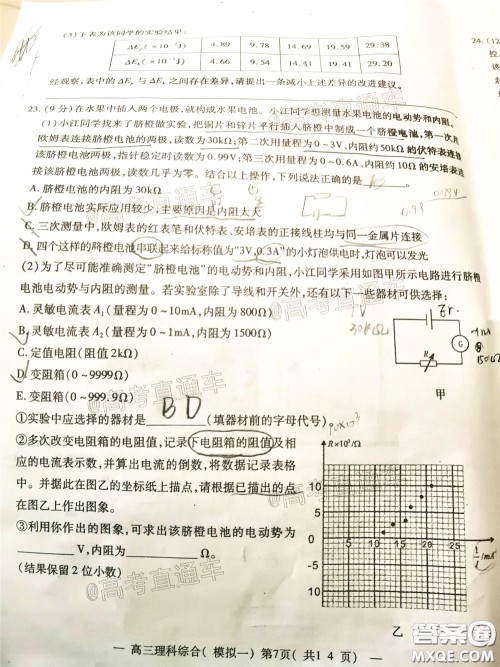 (3)下表为该同学的实验结果:
ΔEₚ(×10⁻²J) 4.89 9.78 14.69 19.59 29.38
ΔEₖ(×10⁻²J) 4.66 9.54 14.41 19.20 29.20
经观察,表中的 ΔEₚ 与 ΔEₖ 之间存在差异,请提出一条减小上述差异的改进建议。
24.(12
23.(9分)在水果中插入两个电极,就构成水果电池。小江同学想测量水果电池的电动势和内阻。
(1)小江同学找来了脐橙做实验,把铜片和锌片平行插入脐橙中制成一个脐橙电池,第一次用
欧姆表连接脐橙电池的两极,读数为30kΩ;第二次用量程为0~3V、内阻约50kΩ的伏特表连接
该电池两极,指针稳定时读数为0.99V;第三次用量程为0~0.6A、内阻约10Ω的安培表连
接脐橙电池的两极,读数几乎为零。结合以上操作,下列说法正确的是
A. 脐橙电池的内阻为30kΩ
B. 脐橙电池实际应用较少,主要原因是内阻太大
C. 三次测量中,欧姆表的红表笔和伏特表、安培表的正接线柱均与同一金属片连接
D. 四个这样的脐橙电池串联起来给标称值为“3V,0.3A”的小灯泡供电时,灯泡可以发光
(2)为了尽可能准确测定“脐橙电池”的电动势和内阻,小江同学采用如图甲所示电路进行脐橙
电池电动势与内阻的测量。若实验室除了导线和开关外,还有以下一些器材可供选择:
A. 灵敏电流表A₁(量程为0~10mA,内阻800Ω)
B. 灵敏电流表A₂(量程为0~1mA,内阻1500Ω)
C. 定值电阻(阻值2kΩ)
D. 变阻箱(0~9999Ω)
E. 变阻箱(0~999.9Ω)
30kΩ
G
R
甲
①实验中应选择的器材是 BD (填器材前的字母代号)
②多次改变电阻箱的电阻值,记录下电阻箱的阻值及相
应的电流表示数,并算出电流的倒数,将数据记录表格
中。并据此在图乙的坐标纸上描点,请根据已描出的点
在图乙上作出图象。
③利用你作出的图象,可求出该脐橙电池的电动势为
V,内阻为 Ω。
(结果保留2位小数)
R×10³/Ω
10
5
5 10 15 20 25
5
10
乙
@高考直通车
高三理科综合(模拟一)第7页(共14页)
答案圈
MXQE.COM